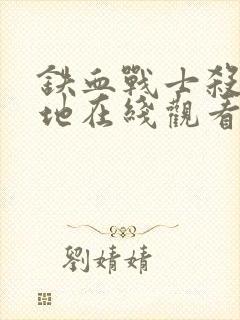 鉄血戰士殺
地在綫觀看
劉婧婧